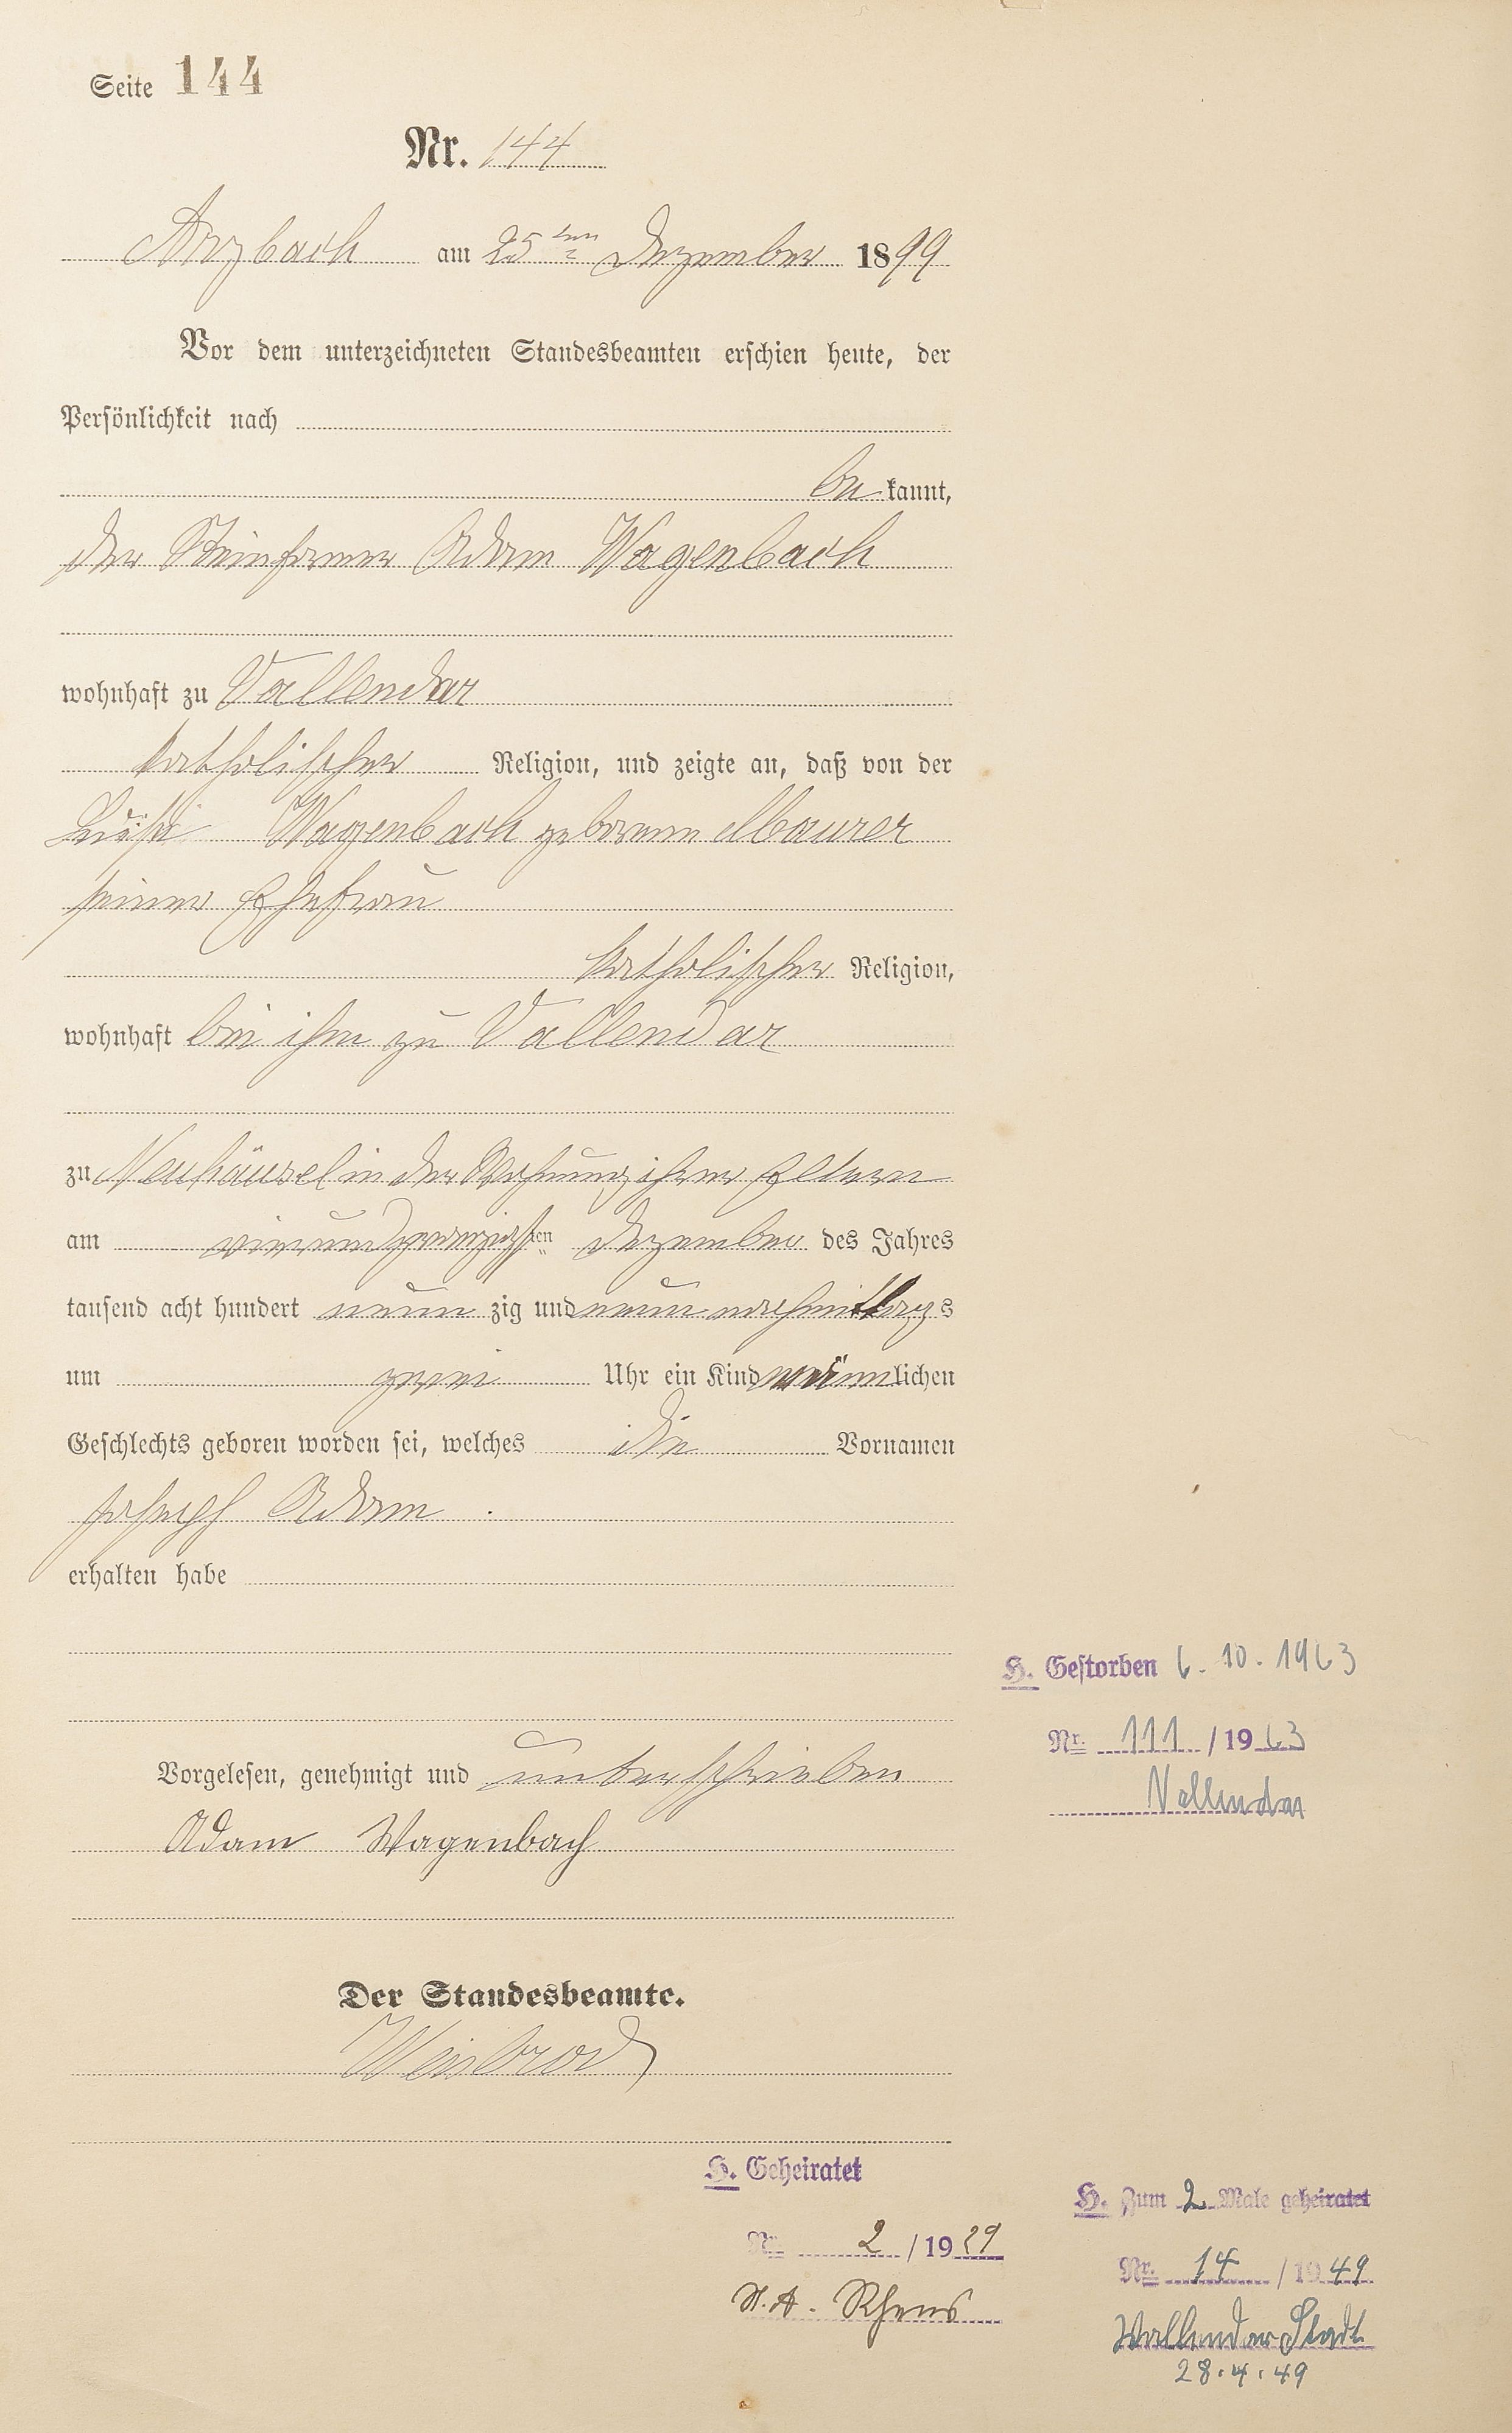 Seite 144
Nr. 144
Arzbach am 25ten Dezember 1899
Vor dem unterzeichneten Standesbeamten erschien heute, der
Persönlichkeit nach
be kannt,
der Steinformer Adam Wagenbach
wohnhaft zu Vallendar
katholischer Religion, und zeigte an, daß von der
Wagenbach geborene Maurer
seiner Ehefrau
katholischer Religion,
wohnhaft bei ihm zu Vallendar
zu Neuhäusel in der Wohnung ihrer Eltern
am vierundzwanzigsten Dezember des Jahres
tausend acht hundert neun zig und neun nachmittags
um zwei Uhr ein Kind männlichen
Geschlechts geboren worden sei, welches die Vornamen
Joseph Adam.
erhalten habe
H. Gestorben 6. 10. 1963
Nr. 111 / 1963
Vallendar
Vorgelesen, genehmigt und unterschrieben
Adam Wagenbach
Der Standesbeamte.
H. Geheiratet
Nr. 2 / 1929
St.A. Rhens
H. Zum 2 Male geheiratet
Nr. 14 / 1949
Vallendar Stadt
28.4.49